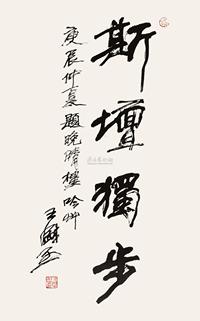 斯壇獨步
庚辰仲夏題晚晴樓吟艸
王